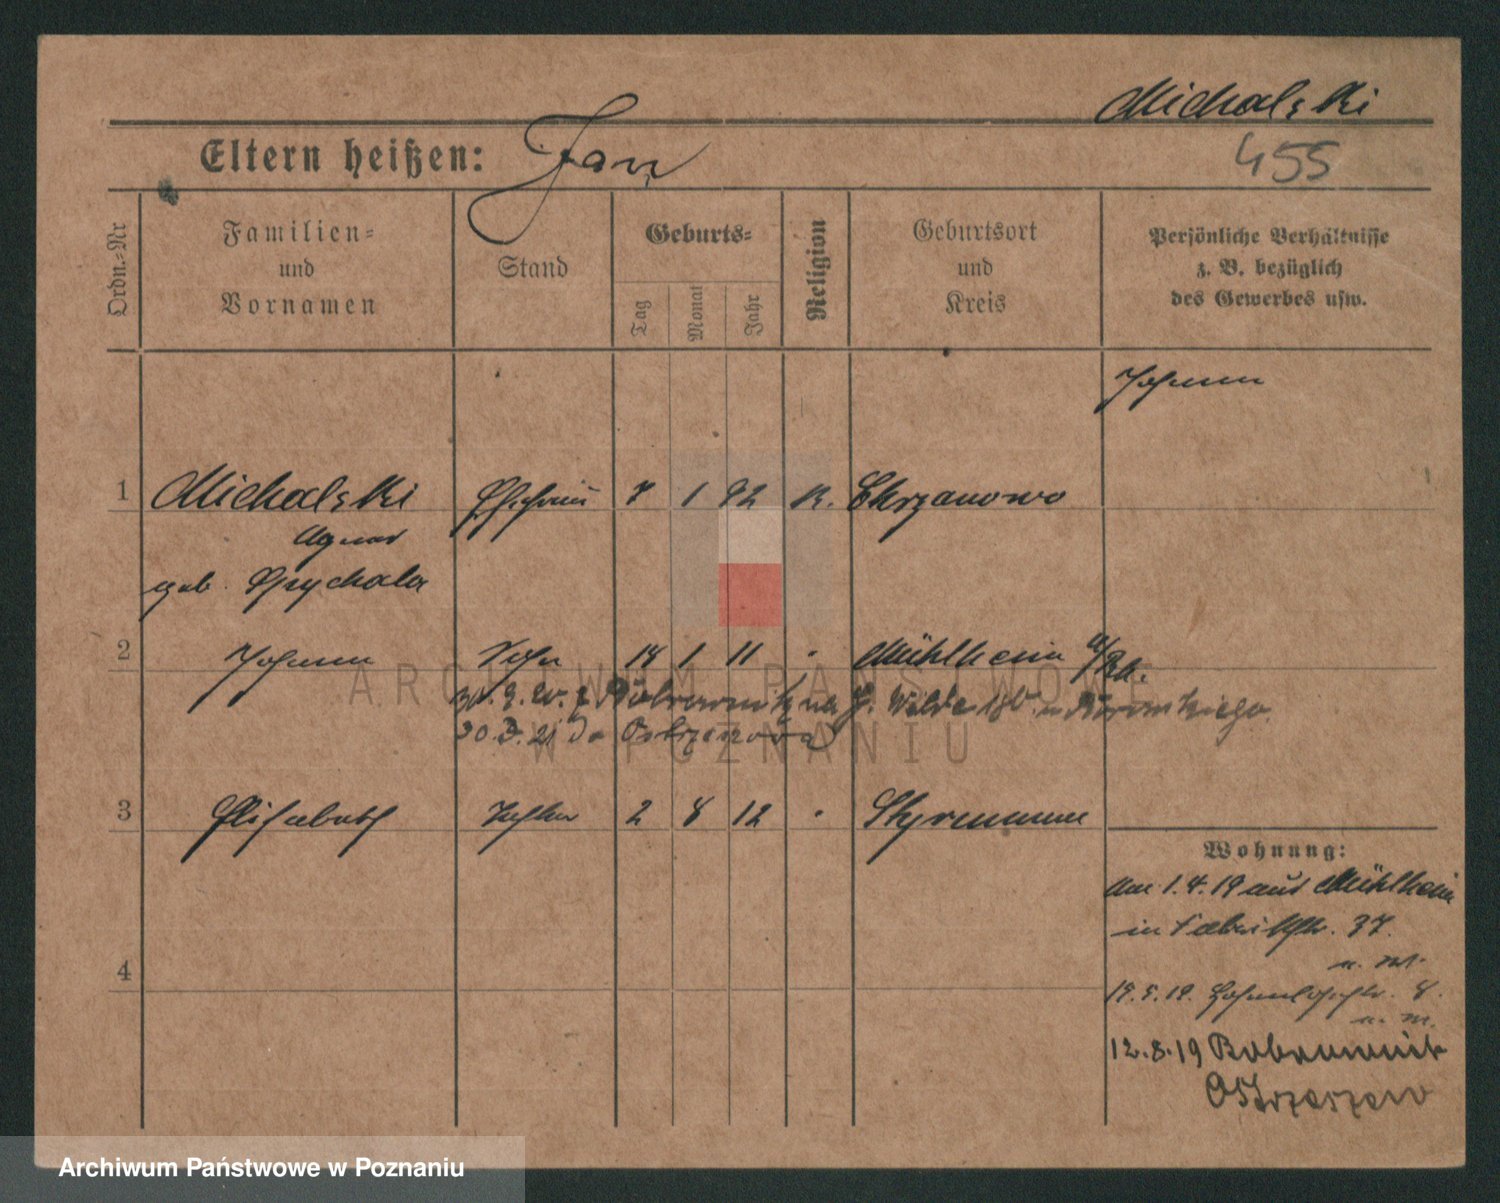 Michalski
Eltern heißen: Jan
455
Ordn.=Nr
Familien=
und
Vornamen
Stand
Geburts=
Tag
Monat
Jahr
Religion
Geburtsort
und
Kreis
Persönliche Verhältnisse
z. B. bezüglich
des Gewerbes usw.
Johann
1 Michalski Ehefrau 7 1 82 K. Chrzanowo
Agnes
geb. Psychala
2 Johann Sohn 14 1 11 Mühlheim a/Rh.
ARCHIWUM PAŃSTWOWE
30. 3. 21 do
W POZNANIU
3 Elisabeth Tochter 2 8 12 Styrum
Wohnung:
Am 1.4.19 aus Mühlheim
in Fabrikstr. 37.
u. M.
19.5.19. Hohenlohestr. 8.
u. M.
12.8.19
Ostrzeszow
4
Archiwum Państwowe w Poznaniu